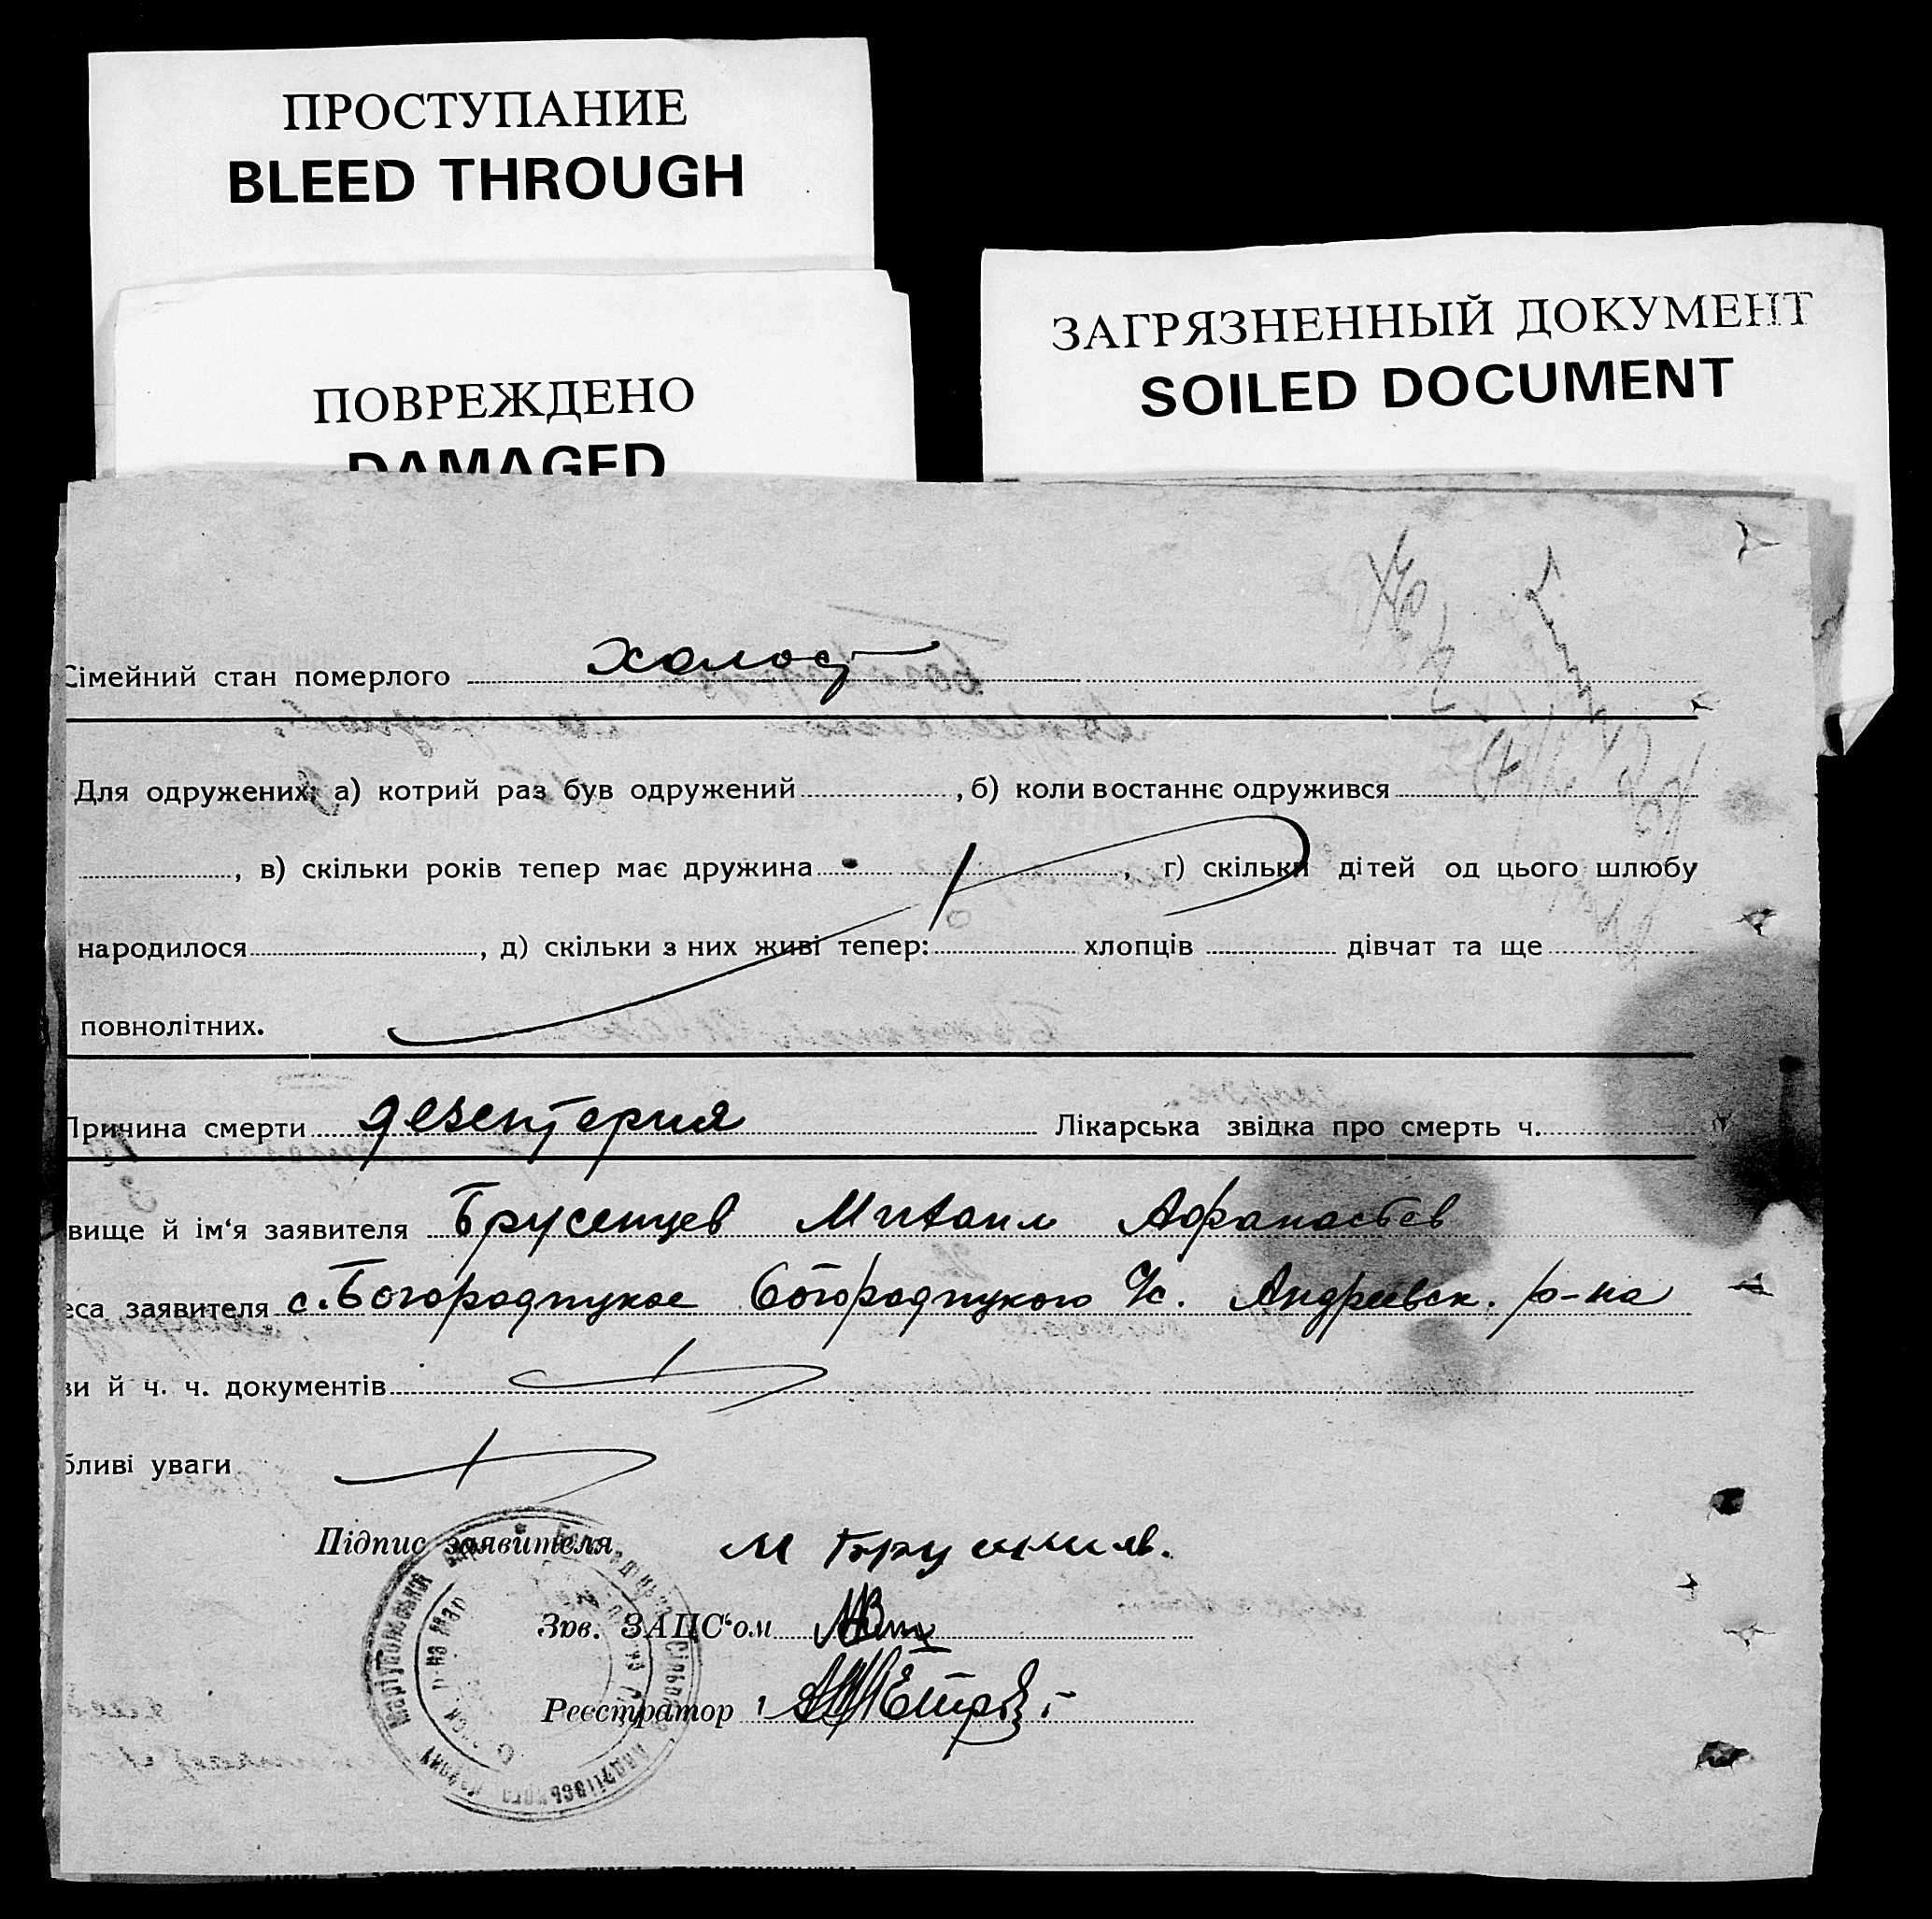 ПРОСТУПАНИЕ
BLEED THROUGH
ПОВРЕЖДЕНО
DAMAGED
ЗАГРЯЗНЕННЫЙ ДОКУМЕНТ
SOILED DOCUMENT
Сімейний стан померлого холост
Для одружених: а) котрий раз був одружений , б) коли востаннє одружився
, в) скільки років тепер має дружина , г) скільки дітей од цього шлюбу
народилося , д) скільки з них живі тепер: хлопців дівчат та ще
повнолітних.
Причина смерти дезентерия Лікарська звідка про смерть ч.
вище й ім‘я заявителя Брусенцев Михаил Афанасьев
еса заявителя с. Богородицкое Богородицкого С/с. Андреевск. р-на
ви й ч. ч. документів
бливі уваги
Підпис заявителя М
Зав. ЗАПС‘ом
Реєстратор